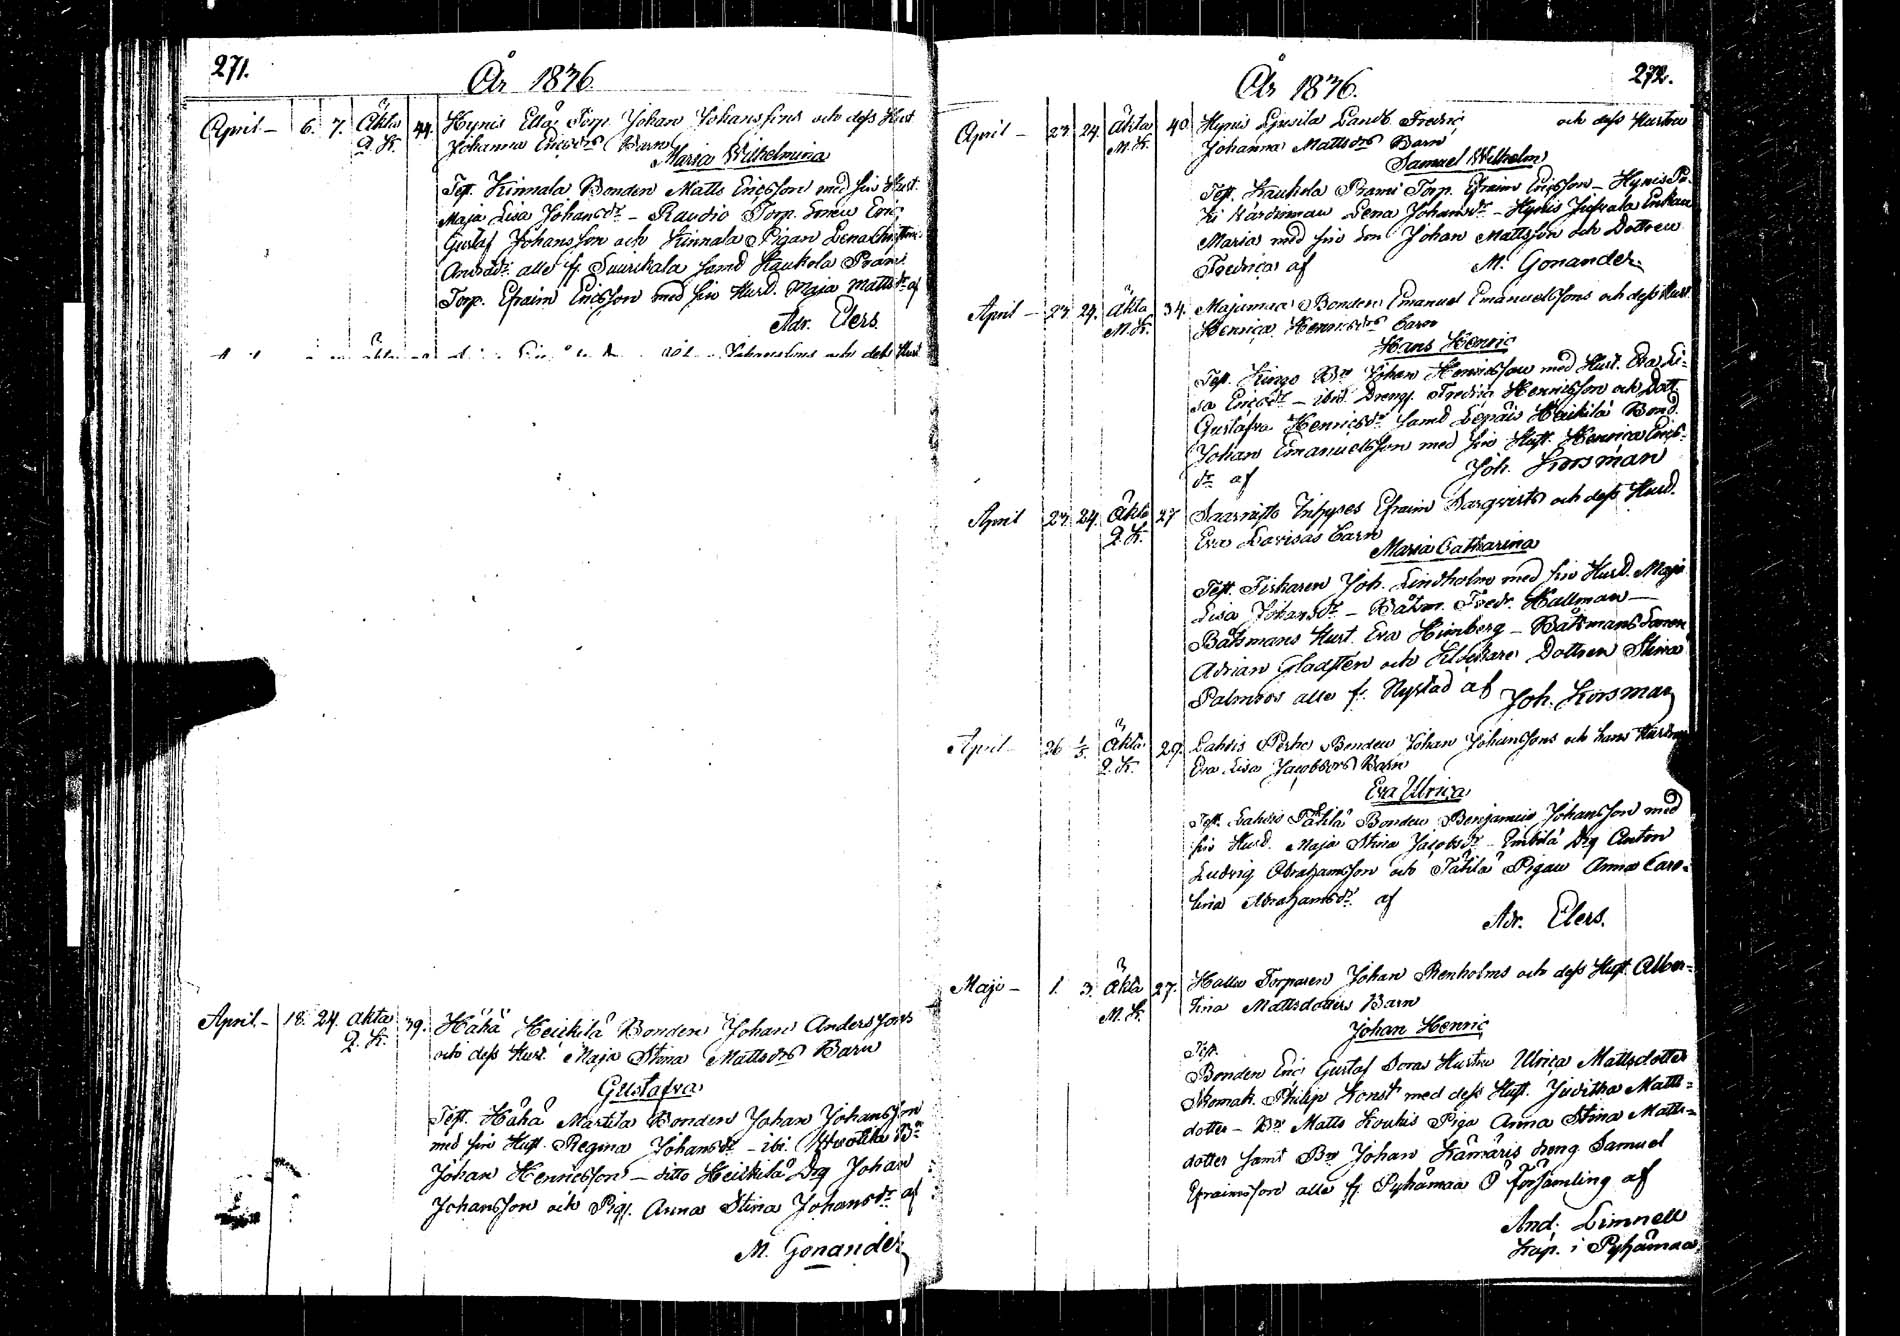 271.
År 1836.
April – 6. 7. Äkta 44. Hynis Ellä Torp. Johan Johanssons och dess Hust
Q. K. Johanna Ericsdrs Barn
Maria Wilhelmina
Test. Kinnala Bonden Matts Ericsson med sin Hust.
Maja Lisa Johansdr – Raudio Torp. Sonen Eric
Gustaf Johansson och Kinnala Pigan Lena
alle fr. Suurikala samt Kaukola Prami
Torp. Efraim Ericsson med sin Hust. Maja Mattsdr af
Adr. Elers.
Johanssons och dess Hust
April – 18. 24. Äkta 39. Hähä Heickilä Bonden Johan Anderssons
Q. K. och dess Hust. Maja Stina Mattsdrs Barn
Gustafva
Test. Hähä Martila Bonden Johan Johansson
med sin Hust. Regina Johansdr – ibi. Bn
Johan Henricsson – ditto Heickilä Drg Johan
Johansson och Pig. Anna Stina Johansdr af
M. Gonander
År 1836.
272.
April – 23 24. Äkta 40. Hynis Landb Fredric och dess Hustru
M. K. Johanna Mattsdrs Barn
Samuel Wilhelm
Test. Kaukola Prami Torp. Efraim Ericsson – Hynis
Lena Johansdr – Hynis Enkan
Maria med sin Son Johan Mattsson och Dottren
Fredrica af M. Gonander
April – 23 24. Äkta 34. Majamaa Bonden Emanuel Emanuelssons och dess Hust.
M. K. Henrica Henricsdrs barn
Hans Henric
Test. Bn Johan Henricsson med Hust. Eva Li-
sa Ericsdr – ibid. Dreng. Fredric Henricsson och Dott
Gustafva Henricsdr samt Lepäis Heikilä Bond.
Johan Emanuelsson med sin Hust. Henrica Erics-
dr af Joh. Korsman
April 23 24. Äkta 27 Efraim och dess Hust.
Q. K. Eva Lovisas barn
Maria Catharina
Test. Fiskaren Joh. Lindholm med sin Hust. Maja
Lisa Johansdr – Båtsm. Fredr. Hallman –
Båtsmans Hust. Eva Himberg – Båtsmans Sonen
Adrian Gladstén och Dottren Stina
Palmros alle fr. Nystad af Joh. Korsman
April – 26 1/5. Äkta 29. Lahdis Perhe Bonden Johan Johanssons och hans Hustru
Q. K. Eva Lisa Jacobsdrs Barn
Eva Ulrica
Test. Lahdis Tätilä Bonden Benjamin Johansson med
sin Hust. Maja Stina Jacobsdr – Drg Anton
Ludvig Abrahamsson och Tätilä Pigan Anna Caro-
lina Abrahamsdr af
Adr. Elers.
Maji – 1. 3. Äkta 27. Hallu Torparen Johan Renholms och dess Hust. Alber-
M. K. tina Mattsdotters Barn
Johan Henric
Test.
Bonden Eric Gustaf Hustru Ulrica Mattsdotter
Skomak. Philip Konst med dess Hust. Juditha Matts-
dotter – Bn Matts Koukis Piga Anna Stina Matts-
dotter samt Bn Johan Kämäris dreng Samuel
Efraimsson alle fr. Pyhämaa Ö församling af
And. Limnell
Kap. i Pyhämaa